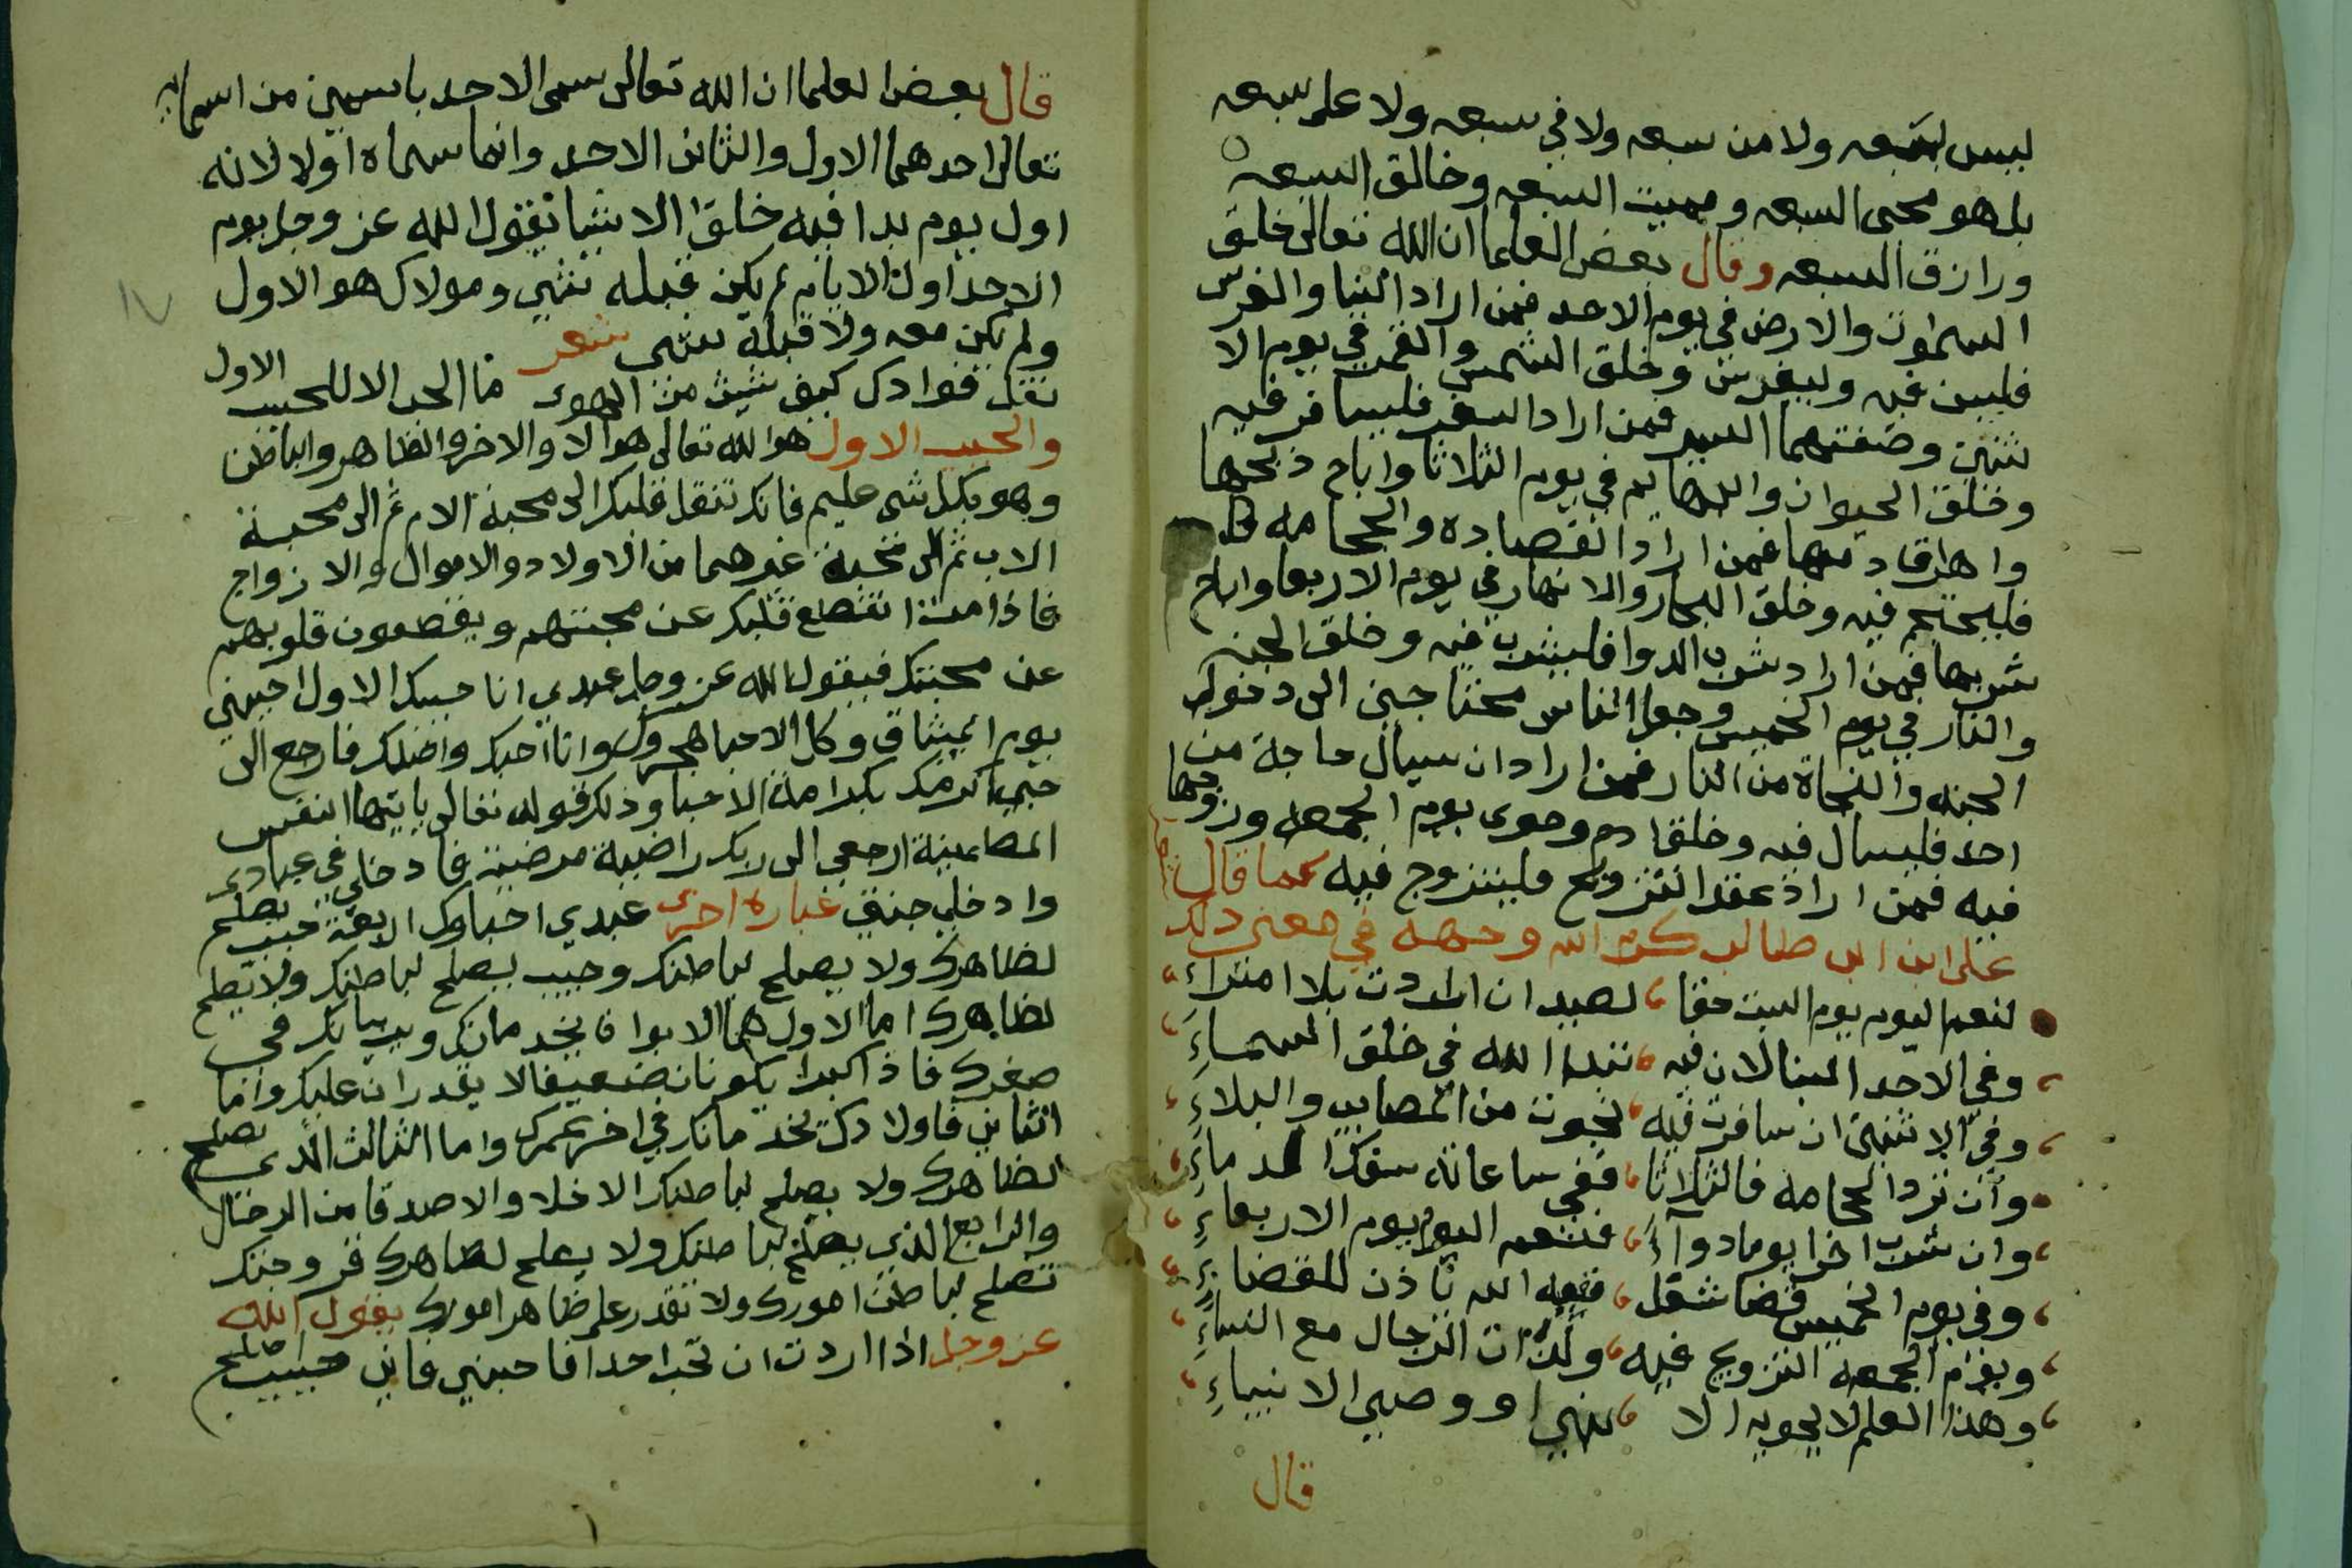 ليس بسبعه ولا من سبعه ولا في سبعه ولا على سبعه
بل هو محيي السبعه ومميت السبعه وخالق السبعه
ورازق السبعه وقال بعض العلما ان الله تعالى خلق
السموات والارض في يوم الاحد فمن اراد البنا والغرس
فليبن فيه وليغرس وخلق الشمس والقمر في يوم الا
ثنين وصفتهما السير فمن اراد السفر فليسافر فيه
وخلق الحيوان والبهايم في يوم الثلاثا واباح ذبحها
واهراق دمها فمن اراد الفصاده والحجامه
فليحتجم فيه وخلق البحار والانهار في يوم الاربعا واباح
شربها فمن اراد شرب الدوا فليشرب فيه وخلق الجنه
والنار في يوم الخميس وجعل الناس محتاجين الى دخول
الجنه والنجاة من النار فمن اراد ان سيال حاجة من
احد فليسال فيه وخلق ادم وحوى يوم الجمعه وزوجها
فيه فمن اراد عقد التزويج فليتزوج فيه كما قال
على ابن ابى طالب كرم الله وجهه في معنى ذلك
لنعم اليوم يوم السبت حقا لصيد ان اردت بلا امتراء
وفي الاحد البنا لان فيه تبدا الله في خلق السماء
وفي الاثنين ان سافرت فيه نجوت من المصايب والبلاء
وان ترد الحجامه فالثلاثا ففي ساعاته سفك الدماء
وان شرب اخرا يوما دواء فنعم اليوم يوم الاربعاء
وفي يوم الخميس قضا شغل ففيه الله ياذن للقضاء
ويوم الجمعه التزويج فيه ولذات الرجال مع النساء
وهذا العلم لا يحويه الا نبي او وصي الانبياء
قال
قال بعض العلما ان الله تعالى سمى الاحد باسمين من اسمايه
تعالى احدهما الاول والثانى الاحد وانما سماه اولا لانه
اول يوم بدا فيه خلق الاشيا يقول الله عز وجل يوم
الاحد اول الايام لم يكن قبله شي ومولاك هو الاول
ولم يكن معه ولا قبله شى شعر
نقل فوادك كيف شيت من الهوى ما الحب الا للحبيب الاول
والحبيب الاول هو الله تعالى هو الا والاخر والظاهر والباطن
وهو بكل شى عليم فانك تنقل قلبك الى محبة الام ثم الى محبة
الاب ثم الى محبة غيرهما من الاولاد والاموال والازواج
فاذا مت انقطع قلبك عن محبتهم ويقطعون قلوبهم
عن محبتك فيقول الله عز وجل عبدي انا حبيبك الاول احببتني
يوم الميثاق وكل الاحبا هجروك وانا احبك واصلك فارجع الى
حبي اكرمك بكرامة الاحبا وذلك قوله تعالى يايتها النفس
المطاينية ارجعي الى ربك راضية مرضية فادخلي في عبادى
وادخلي جنتي عباره اخرى عبدي احباوك اربعة حبيب يصلح
لظاهرك ولا يصلح لباطنك وحبيب يصلح لباطنك ولا يصلح
لظاهرك اما الاول هما الابوان يخدمانك ويربيانك في
صغرك فاذا كبرا يكونان ضعيفا لا يقدران عليك واما
الثاني فاولادك تخدمانك في اخر عمرك واما الثالث الذى يصلح
لظاهرك ولا يصلح لباطنك الاخلا والاصدقا من الرجال
والرابع الذي يصلح لباطنك ولا يصلح لظاهرك فزوجتك
تصلح لباطن امورك ولا تقدر على ظاهر امورك يقول الله
عز وجل اذا اردت ان تحب احدا فاحببني فاني حبيب صالح